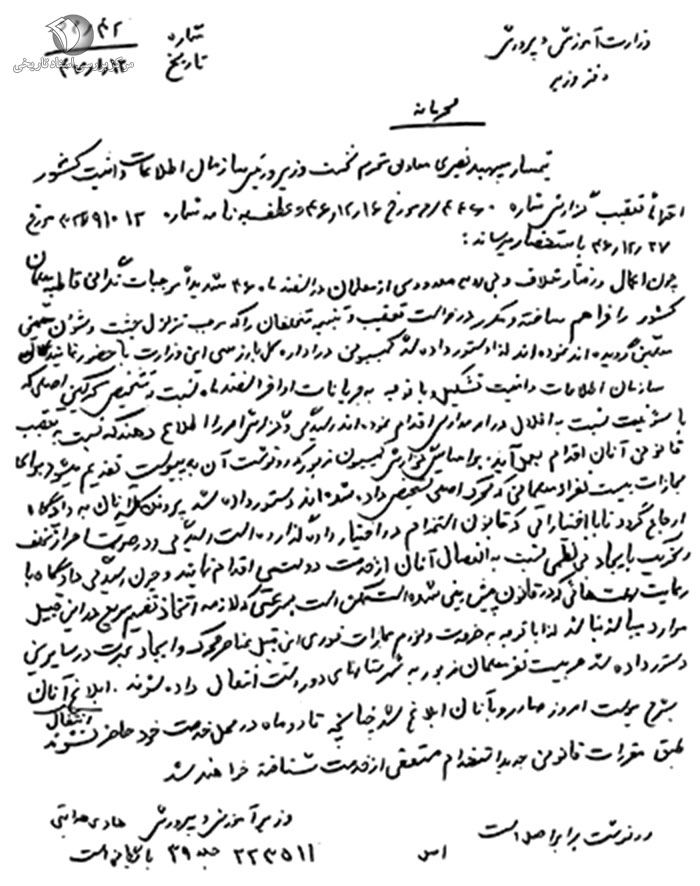 وزارت آموزش و پرورش
دفتر وزیر
شماره
تاریخ
مرکز بررسی اسناد تاریخی
محرمانه
تیمسار سپهبد نصیری معاون محترم نخست وزیر و رئیس سازمان اطلاعات و امنیت کشور
تعقیب گزارش شماره مورخ ۴۶/۱۲/۱۶ و عطف به نامه شماره مورخ
۴۶/۱۲/۲۷ باستحضار میرساند:
چون اعمال و رفتار خلاف و بی رویه معدودی از معلمان در اسفند ماه ۴۶ شدیداً موجبات نگرانی قاطبه معلمان
کشور را فراهم ساخته و مکرر درخواست تعقیب و تنبیه متخلفان را که موجب تزلزل حیثیت و شئون
معلمین گردیده اند نموده اند لذا دستور داده شد کمیسیونی در اداره کل بازرسی این وزارت با حضور نمایندگان
سازمان اطلاعات و امنیت تشکیل و با توجه به جریانات اواخر اسفند ماه نسبت به تشخیص محرکین اصلی که
با سوء نیت نسبت به اخلال در امر مدارس اقدام نموده اند رسیدگی و گزارش امر را اطلاع دهند که نسبت به تعقیب
قانونی آنان اقدام بعمل آید. براساس گزارش کمیسیون مزبور که رونوشت آن به پیوست تقدیم میشود برای
مجازات بیست نفر از معلمانی که محرک اصلی تشخیص داده شده اند دستور داده شد پرونده آنان به دادگاه
ارجاع گردد تا با اختیاراتی که قانون استخدام در اختیار دادگاه گذارده است رسیدگی و در صورت احراز تخلف
و تحریک یا ایجاد بی نظمی نسبت به انفصال آنان از خدمت دولت اقدام نمایند و چون رسیدگی دادگاه با
رعایت مهلت هائی که در قانون پیش بینی شده است ممکن است بسرعتی که لازمه اتخاذ تصمیم سریع در این قبیل
موارد میباشد نباشد لذا با توجه به ضرورت و لزوم مجازات فوری این قبیل عناصر محرک و ایجاد عبرت در سایرین
دستور داده شد هر بیست نفر معلمان مزبور به شهرستانهای دور دست انتقال داده شوند. ابلاغ انتقال آنان
بشرح پیوست امروز صادر و بآنان ابلاغ شد چنانچه تا دو ماه در محل خدمت خود حاضر نشوند
طبق مقررات قانونی جدید استخدام مستعفی از خدمت شناخته خواهند شد
وزیر آموزش و پرورش هادی هدایتی
رونوشت برابر اصل است
اصل ۲۲۳۵۱۱ جلد ۳۹ بایگانی است